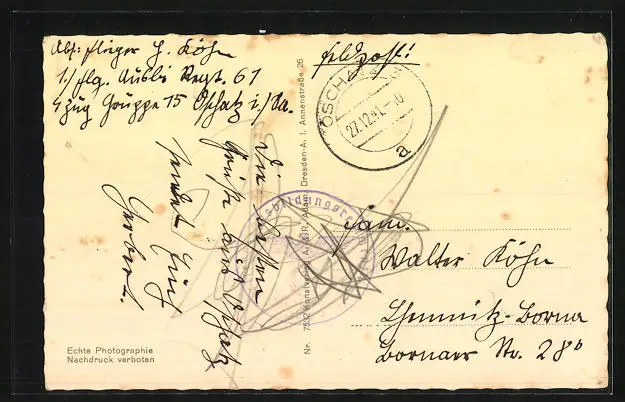 Abs: Flieger H. Köhn
1./Flg. Ausb. Regt. 61
4 Zug Gruppe 15 Oschatz i./Sa.
Feldpost!
OSCHATZ
27.12.41.-10
a
Die besten
Grüße aus Oschatz
sendet Euch
Herbert.
Ausbildungsre
Nr. 7532 Dresden-A. 1, Annenstraße 25
Fam.
Walter Köhn
Chemnitz-Borna
Bornaer Str. 28b
Echte Photographie
Nachdruck verboten